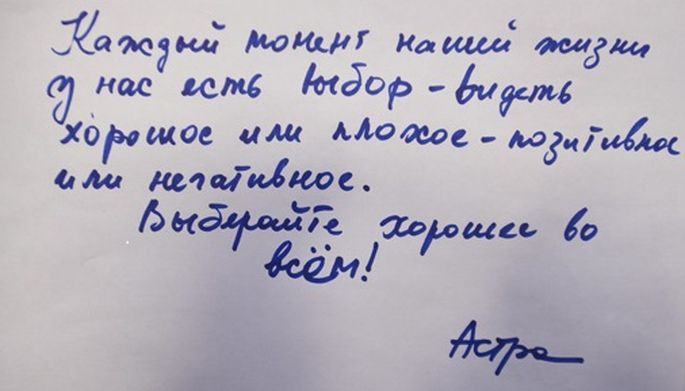 Каждый момент нашей жизни
у нас есть выбор - видеть
хорошое или плохое - позитивное
или негативное.
Выберайте хорошее во
всём!
Астра